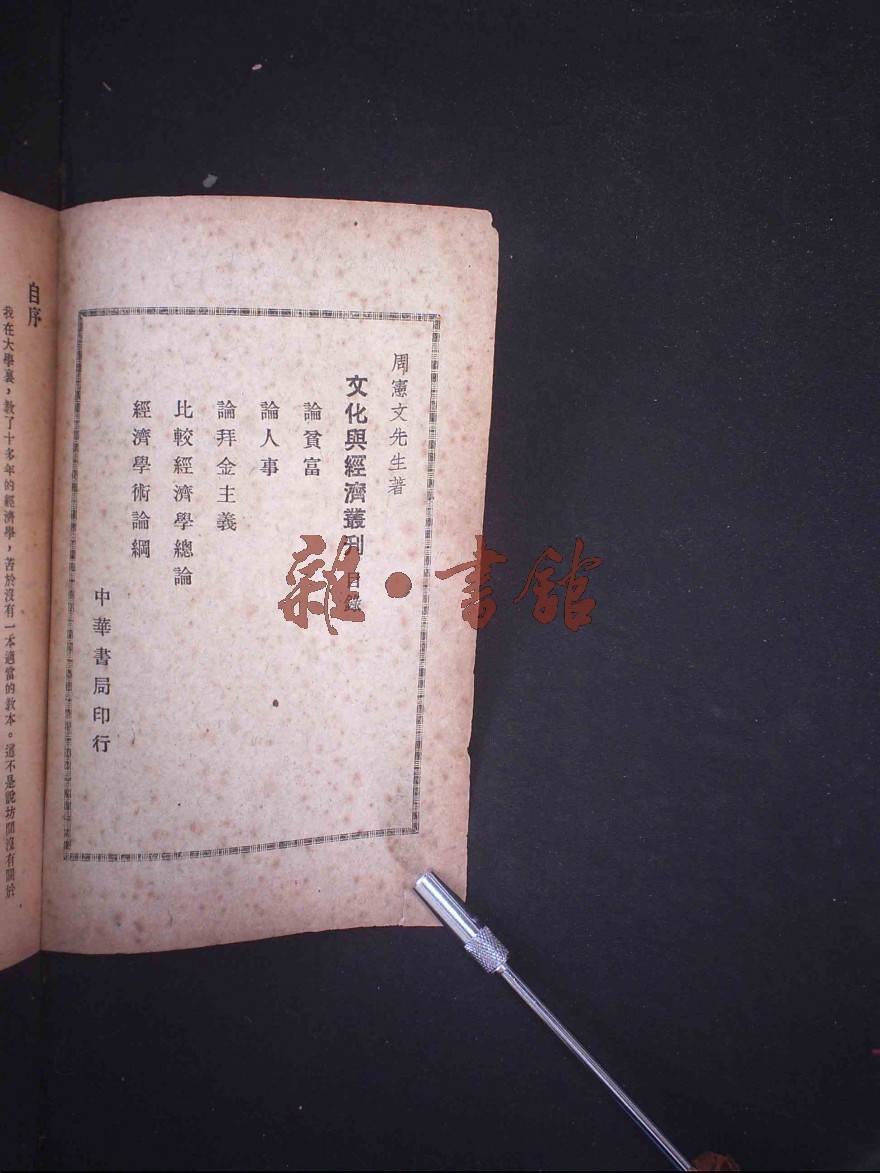 周憲文先生著
文化與經濟叢刊 目錄
論貧富
論人事
論拜金主義
比較經濟學總論
經濟學術論綱
中華書局印行
自序
我在大學裏，教了十多年的經濟學，苦於沒有一本適當的教本。這不是說坊間沒有關於
雜·書館